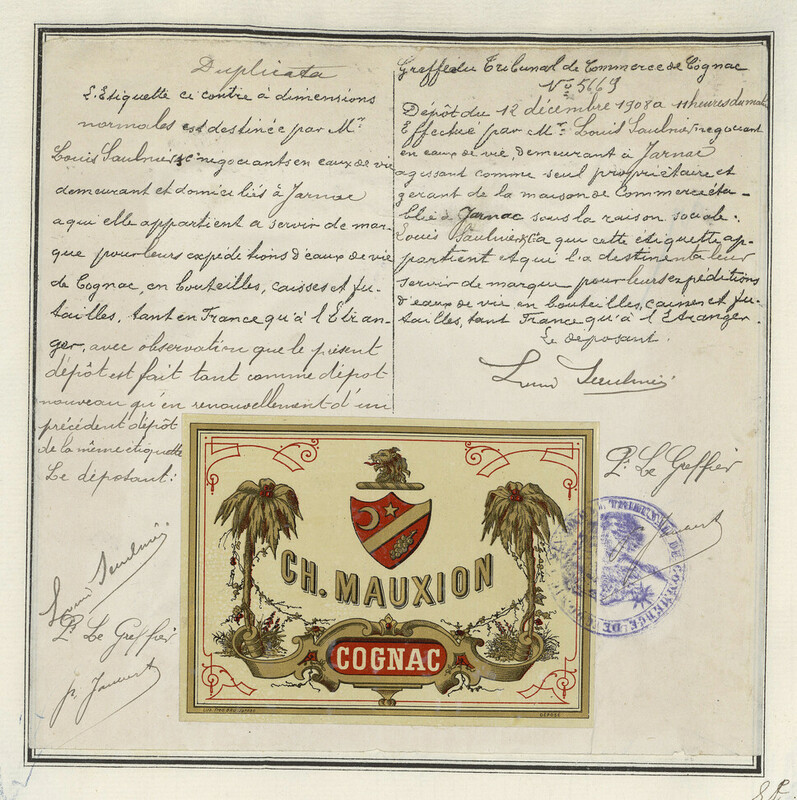 Duplicata
L'Etiquette ci contre à dimensions
normales est destinée par Mr.
Louis Saulnier & Cie negociants en eaux de vie
demeurant et domiciliés à Jarnac
a qui elle appartient a servir de mar-
que pour leurs expéditions d'eaux de vie
de Cognac, en bouteilles, caisses et fu-
tailles, tant en France qu'à l'Etran-
ger, avec observation que le présent
dépôt est fait tant comme dépot
nouveau qu'en renouvellement d'un
précédent dépôt
de la même étiquette
Le déposant:
Louis Saulnier
P. Le Greffier
Greffe du Tribunal de Commerce de Cognac
No. 5669
Dépôt du 12 décembre 1908 a 11 heures du matin
Effectué par Mr. Louis Saulnier negociant
en eaux de vie, demeurant à Jarnac
agissant comme seul propriétaire et
gérant de la maison de Commerce éta-
blie à Jarnac sous la raison sociale:
Louis Saulnier & Cie a qui cette étiquette ap-
partient et qui l'a destinent a leur
servir de marque pour leurs expéditions
d'eaux de vie en bouteilles, caisses et fu-
tailles, tant France qu'à l'Etranger.
Le deposant.
Louis Saulnier
P. Le Greffier
CH. MAUXION
COGNAC
DÉPOSÉ
TRIBUNAL DE COMMERCE DE